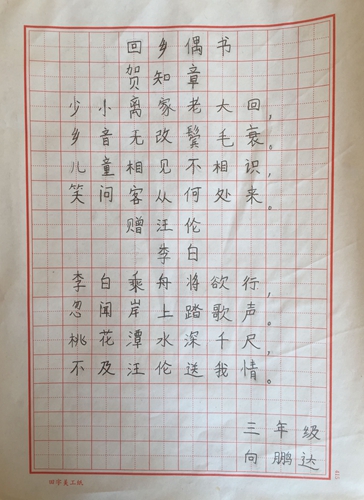 回乡偶书
贺知章
少小离家老大回，
乡音无改鬓毛衰。
儿童相见不相识，
笑问客从何处来。
赠汪伦
李白
李白乘舟将欲行，
忽闻岸上踏歌声。
桃花潭水深千尺，
不及汪伦送我情。
三年级
向鹏达
田学美工纸